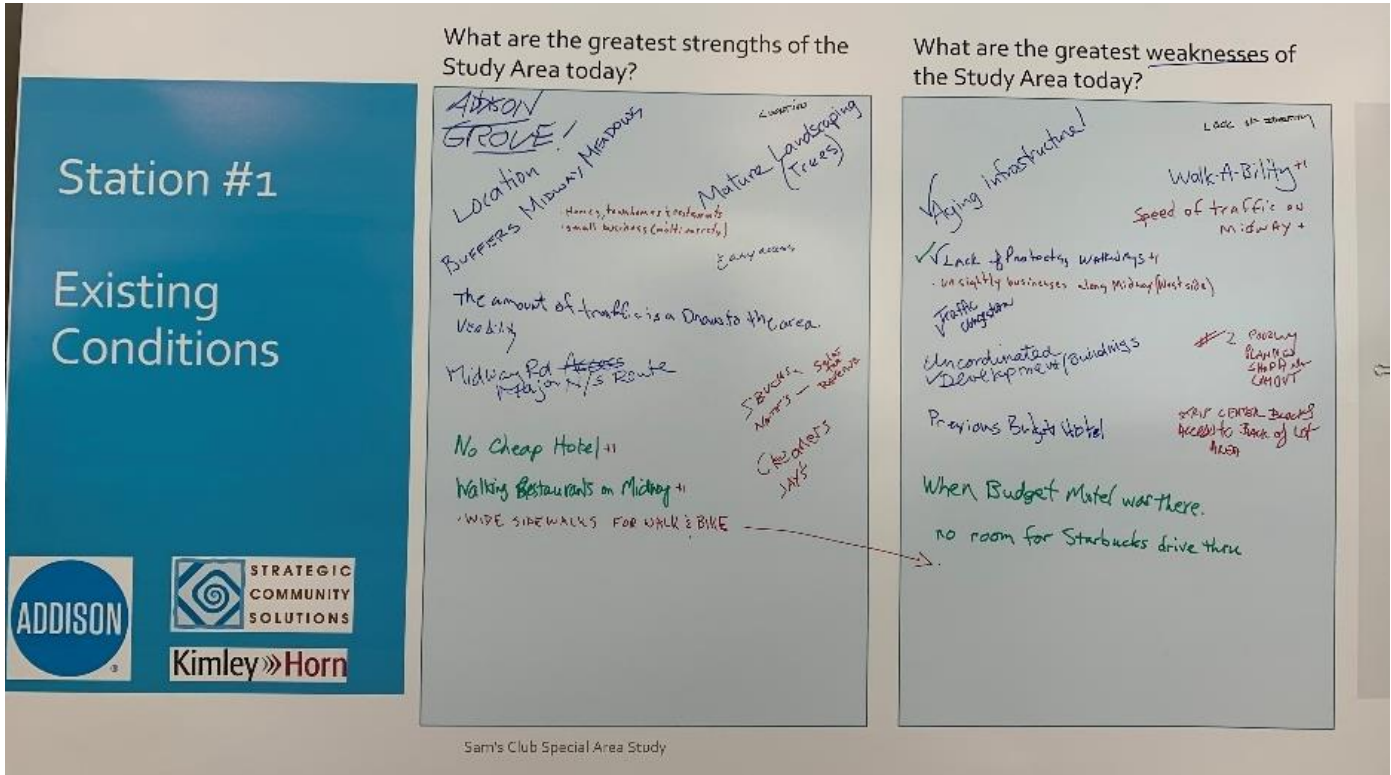 Station #1
Existing
Conditions
ADDISON
®
STRATEGIC
COMMUNITY
SOLUTIONS
Kimley»Horn
What are the greatest strengths of the
Study Area today?
ADDISON
GROVE!
Location
BUFFERS MIDWAY MEADOWS
Location
Mature Landscaping
(Trees)
Homes, townhomes & restaurants
small business
Easy access
The amount of traffic is a Draw to the area.
Midway Rd Access
Major N/S Route
SBUCKS
Sales
Tax
Revenue
No Cheap Hotel +1
Cleaners
JAY'S
Walking Restaurants on Midway +1
· WIDE SIDEWALKS FOR WALK & BIKE
What are the greatest weaknesses of
the Study Area today?
Aging infrastructure!
Lack of
Walk-A-Bility +1
Speed of traffic on
MIDWAY +
Lack of Protected Walkways +1
· unsightly businesses along Midway (West side)
Traffic
Congestion
Uncordinated
Development/Buildings
# 2 POORLY
PLANNED
SHOPPING
LAYOUT
Previous Budget Hotel
STRIP CENTER BLOCKS
ACCESS TO BACK of LOT
AREA
When Budget Motel was there.
no room for Starbucks drive thru
Sam's Club Special Area Study